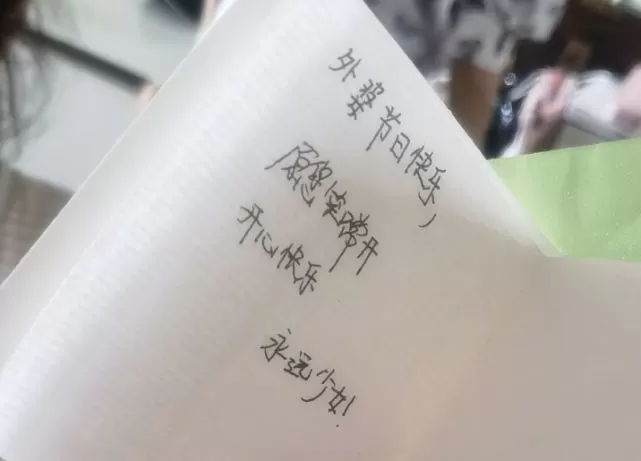 外婆节日快乐，
愿您笑常开
开心快乐
永远少女！